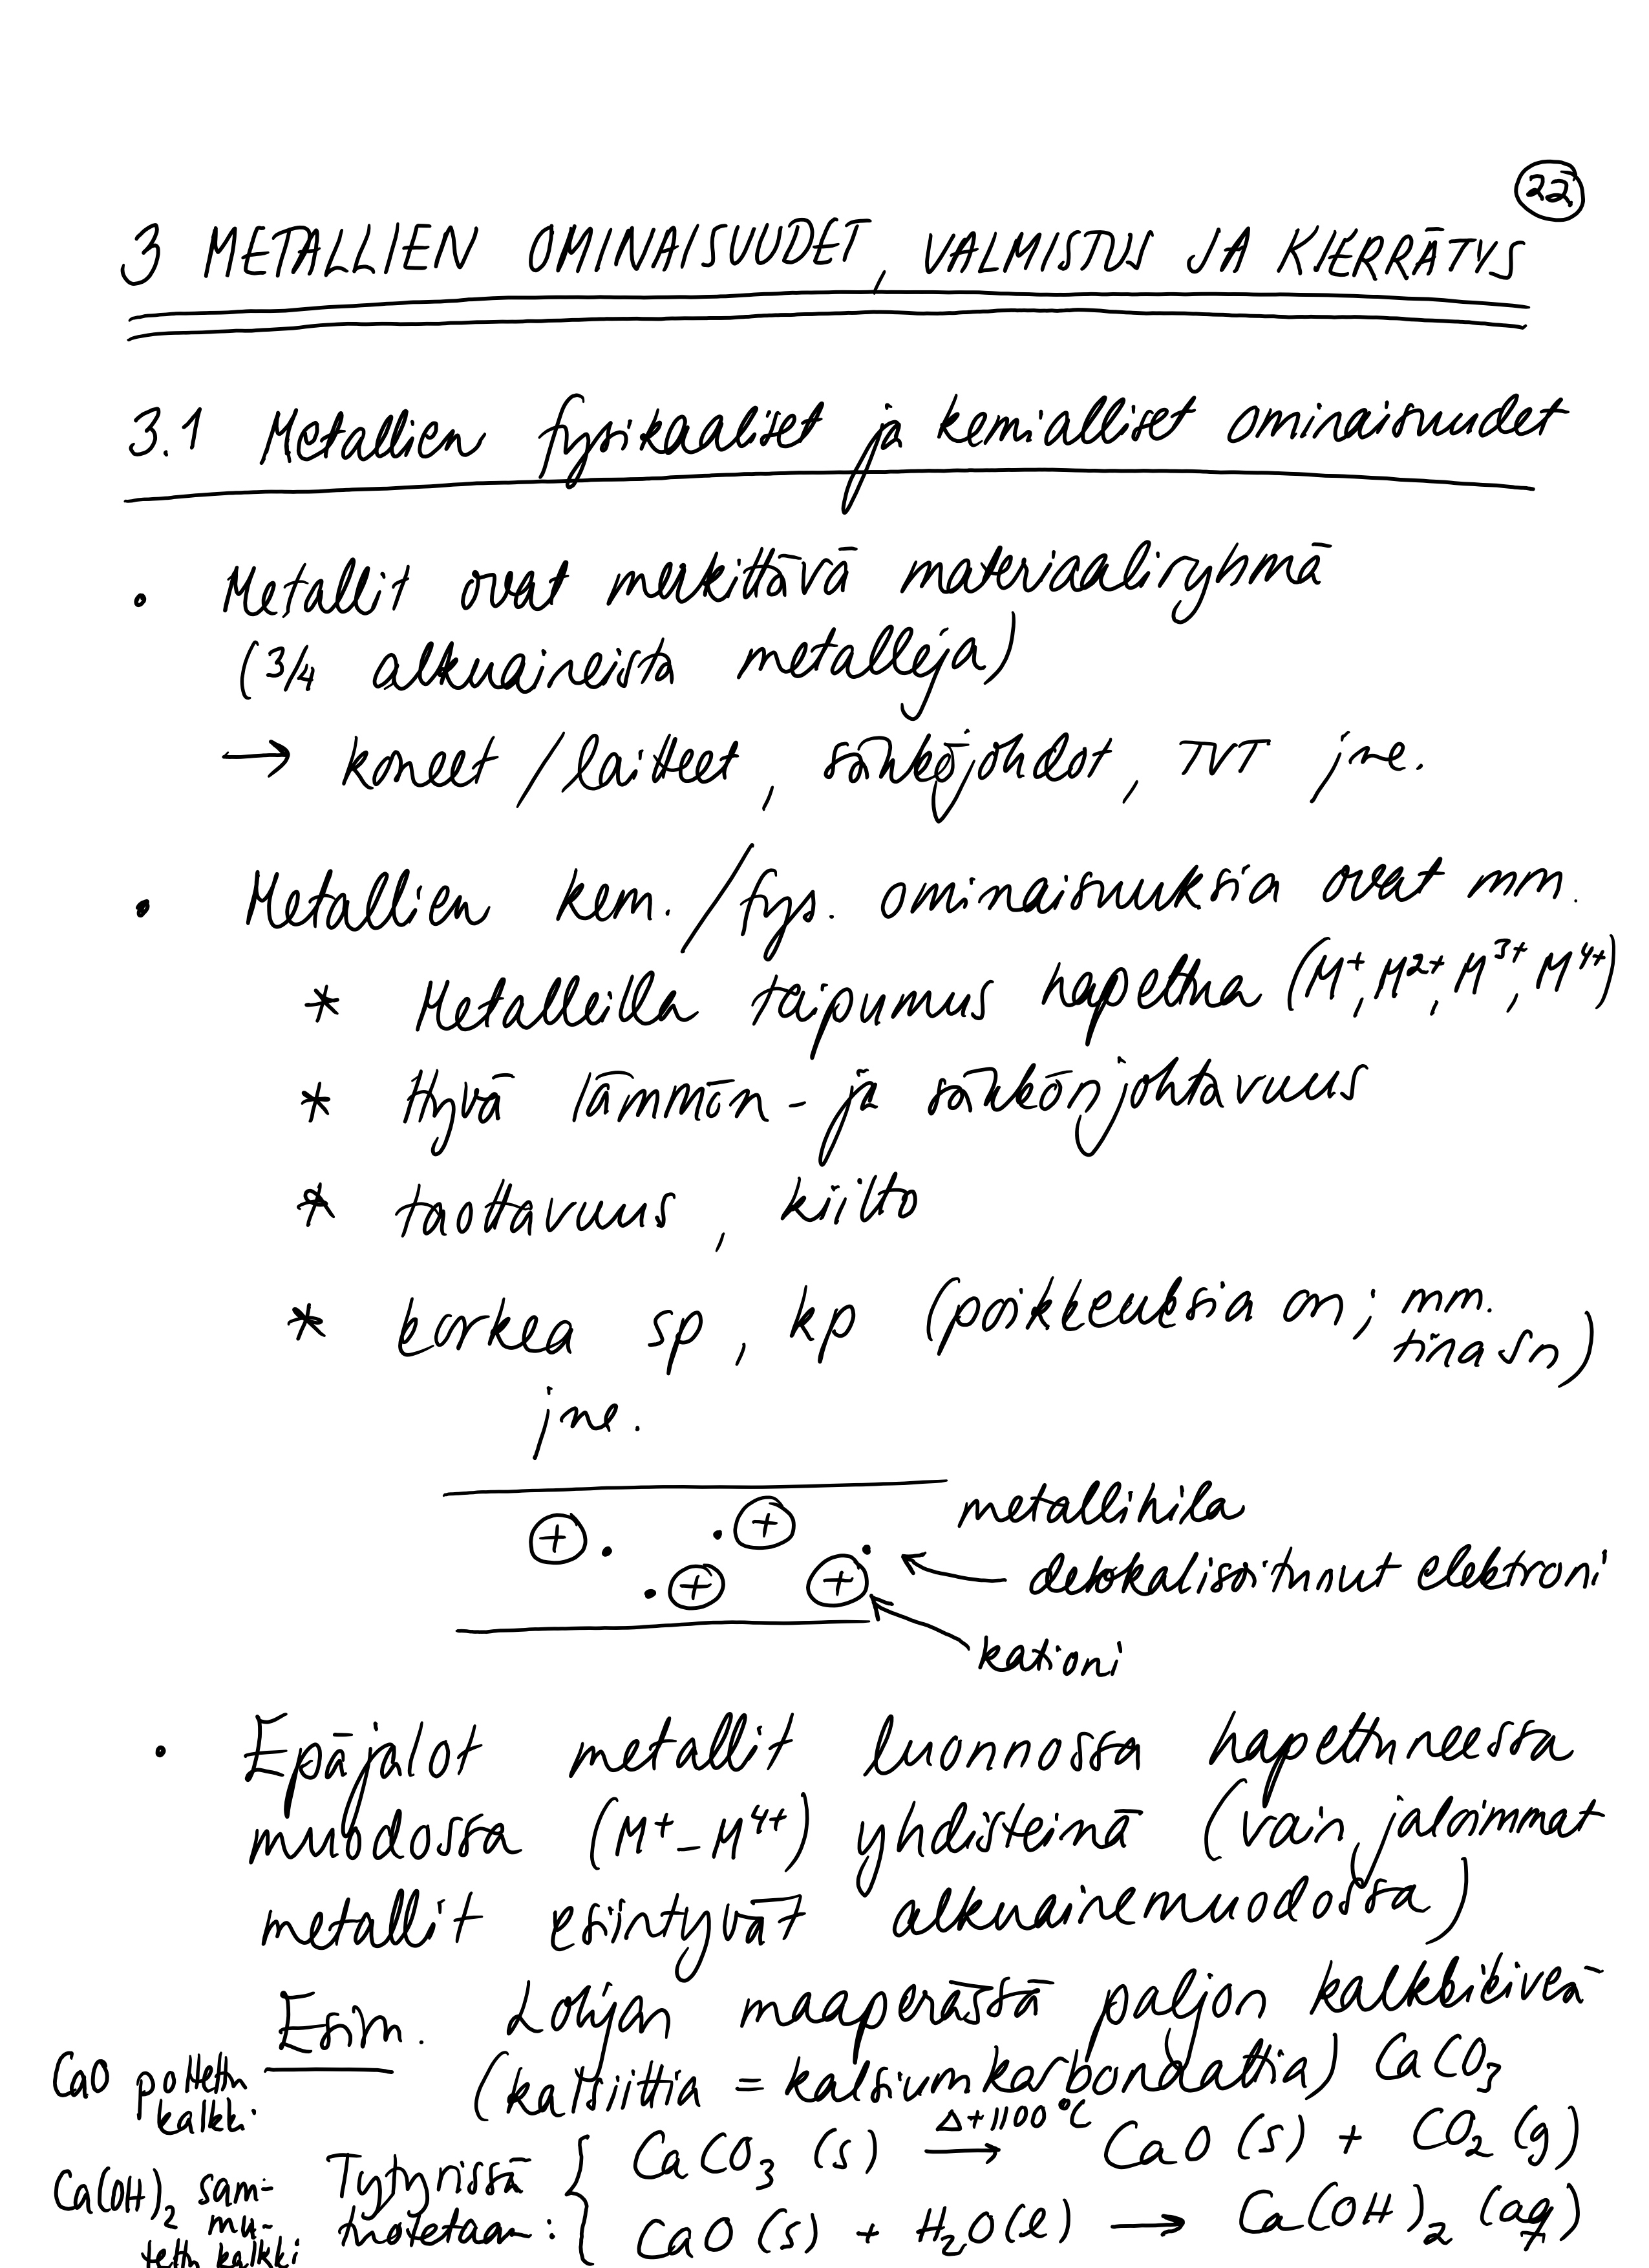 22
3 METALLIEN OMINAISUUDET, VALMISTUS JA KIERRÄTYS
3.1 Metallien fysikaaliset ja kemialliset ominaisuudet
• Metallit ovat merkittävä materiaaliryhmä
(3/4 alkuaineista metalleja)
→ koneet / laitteet, sähköjohdot, TVT jne.
• Metallien kem. / fys. ominaisuuksia ovat mm.
* Metalleilla taipumus hapettua (M⁺, M²⁺, M³⁺, M⁴⁺)
* Hyvä lämmön- ja sähkönjohtavuus
* taottavuus, kiilto
* korkea sp, kp (poikkeuksia on; mm.
tina Sn)
jne.
metallihila
delokalisoitunut elektroni
kationi
• Epäjalot metallit luonnossa hapettuneessa
muodossa (M⁺ – M⁴⁺) yhdisteinä (vain jaloimmat
metallit esiintyvät alkuainemuodossa)
Esim. Lohjan maaperässä paljon kalkkikiveä
(kalsiittia = kalsiumkarbonaattia) CaCO₃
CaO poltettu
kalkki
Tytyrissä
tuotetaan:
CaCO₃ (s) Δ+1100 °C → CaO (s) + CO₂ (g)
CaO (s) + H₂O (l) → Ca(OH)₂ (aq)
Ca(OH)₂ sam-
mu-
tettu kalkki